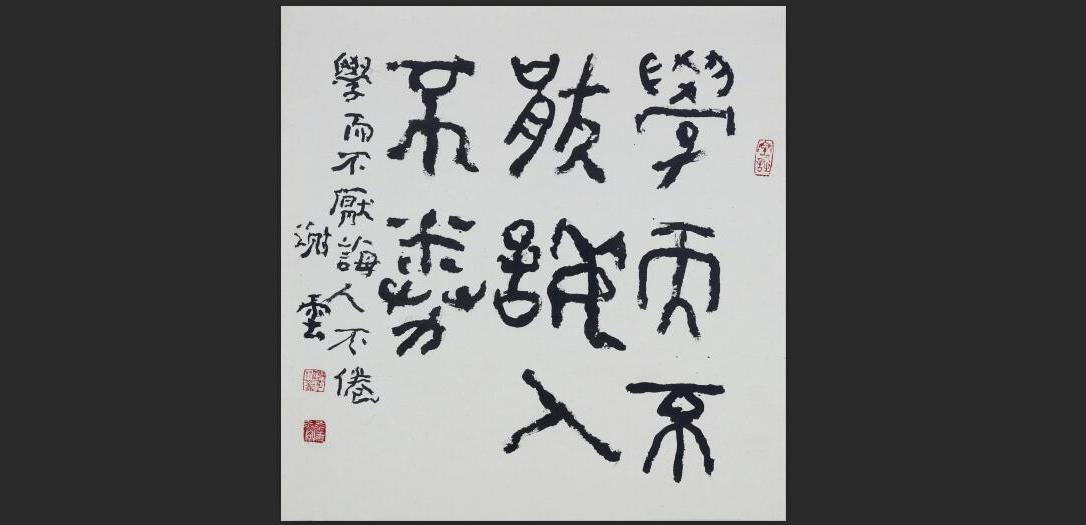 學而不
猒誨人
不劵
學而不厭誨人不倦
謝雲